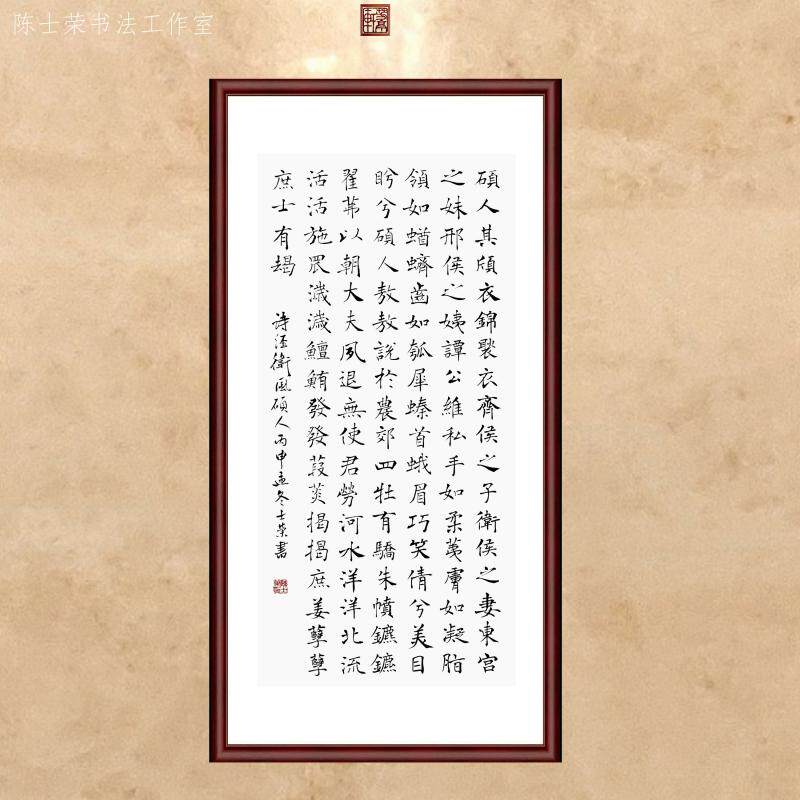 陈士荣书法工作室
碩人其頎衣錦褧衣齊侯之子衛侯之妻東宮
之妹邢侯之姨譚公維私手如柔荑膚如凝脂
領如蝤蠐齒如瓠犀螓首蛾眉巧笑倩兮美目
盻兮碩人敖敖說於農郊四牡有驕朱幩鑣鑣
翟茀以朝大夫夙退無使君勞河水洋洋北流
活活施罛濊濊鱣鮪發發葭菼揭揭庶姜孽孽
庶士有朅
詩經衛風碩人丙申孟冬士榮書